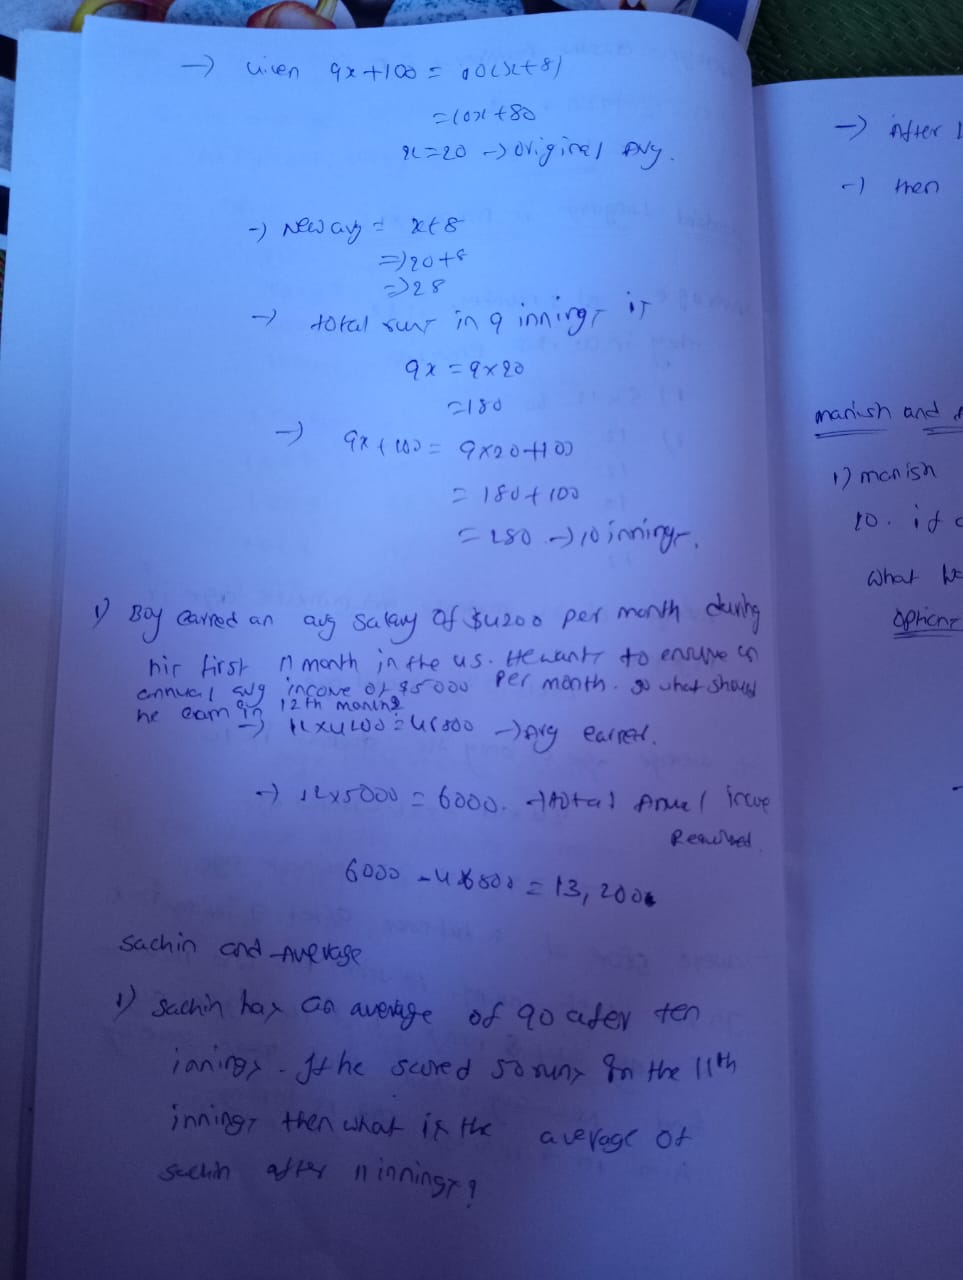 → Given 9x+100 = 10(x+8)
= 10x +80
x=20 → original Avg.
→ New avg = x+8
⇒ 20+8
⇒ 28
→ total runs in 9 innings is
9x = 9x20
=180
→ 9x+100 = 9x20+100
= 180+100
= 280 → 10 innings.
1) Boy earned an avg salary of $4200 per month during
his first 11 month in the US. He wants to ensure an
annual avg income of $5000 per month. so what should
he earn in 12th month
→ 11x4200 = 46800 → Avg earned.
→ 12x5000 = 6000. → total Annual income
Required.
6000 - 46800 = 13,200
Sachin and Average
1) Sachin has an average of 90 after ten
innings. If he scored 50 runs in the 11th
innings then what is the average of
Sachin after 11 innings?
→ After
→ then
manish and
1) manish
10. if
what
options